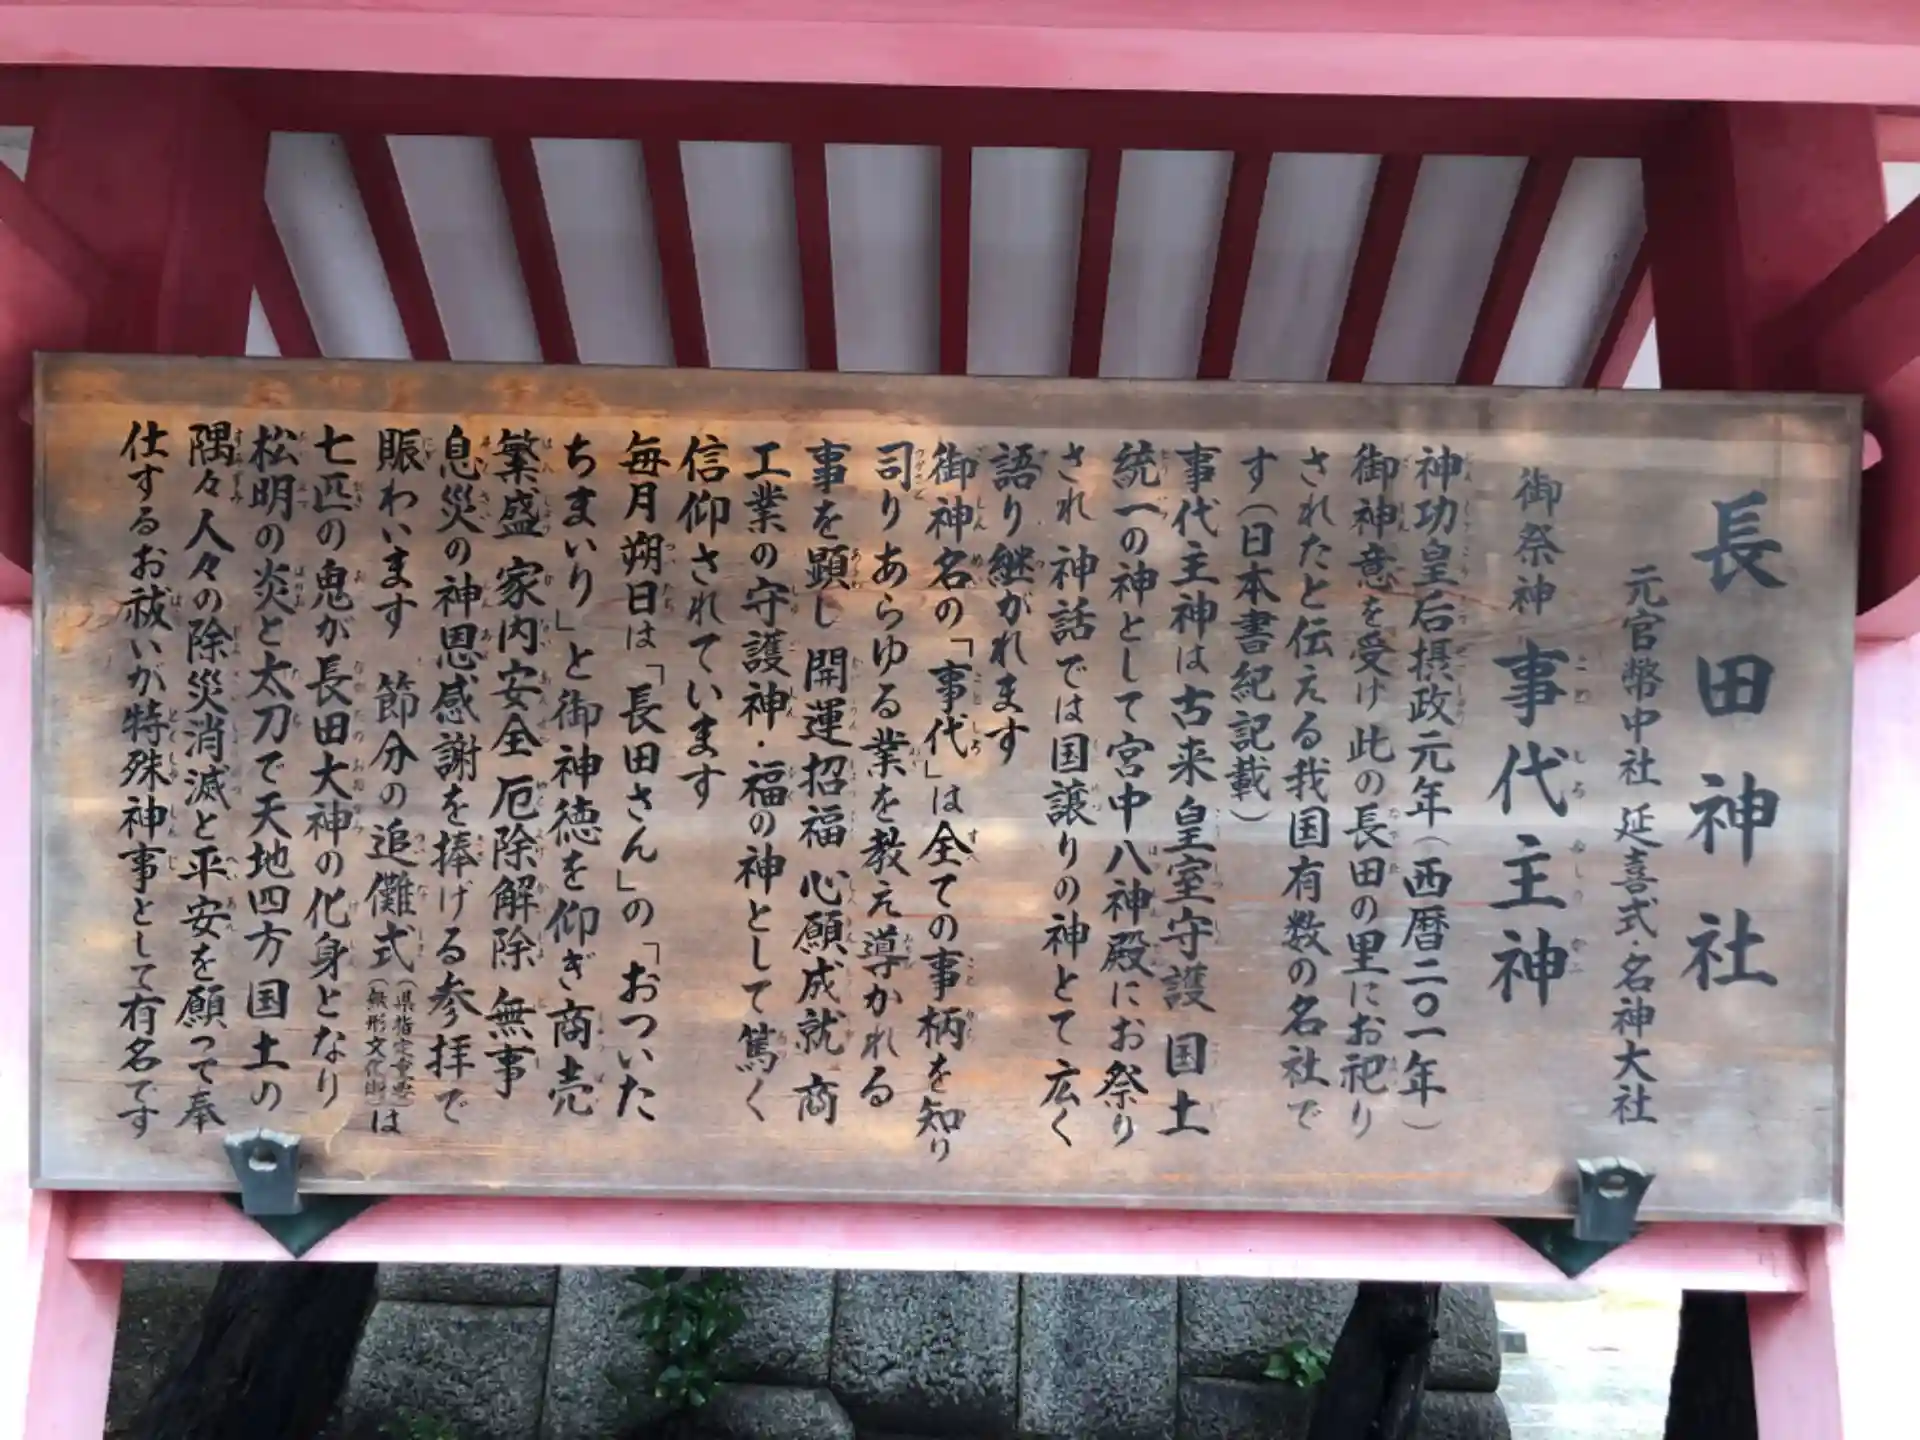 長田神社
元官幣中社 延喜式・名神大社
御祭神 事代主神
神功皇后摂政元年(西暦二〇一年)
御神意を受け此の長田の里にお祀り
されたと伝える我国有数の名社で
す(日本書紀記載)
事代主神は古来皇室守護 国土
統一の神として宮中八神殿にお祭り
され 神話では国譲りの神とて広く
語り継がれます
御神名の「事代」は全ての事柄を知り
司りあらゆる業を教え導かれる
事を顕し 開運招福 心願成就 商
工業の守護神・福の神として篤く
信仰されています
毎月朔日は「長田さん」の「おついた
ちまいり」と御神徳を仰ぎ商売
繁盛 家内安全 厄除解除 無事
息災の神恩感謝を捧げる参拝で
賑わいます 節分の追儺式(県指定重要無形文化財)は
七匹の鬼が長田大神の化身となり
松明の炎と太刀で天地四方 国土の
隅々人々の除災消滅と平安を願って奉
仕するお祓いが特殊神事として有名です